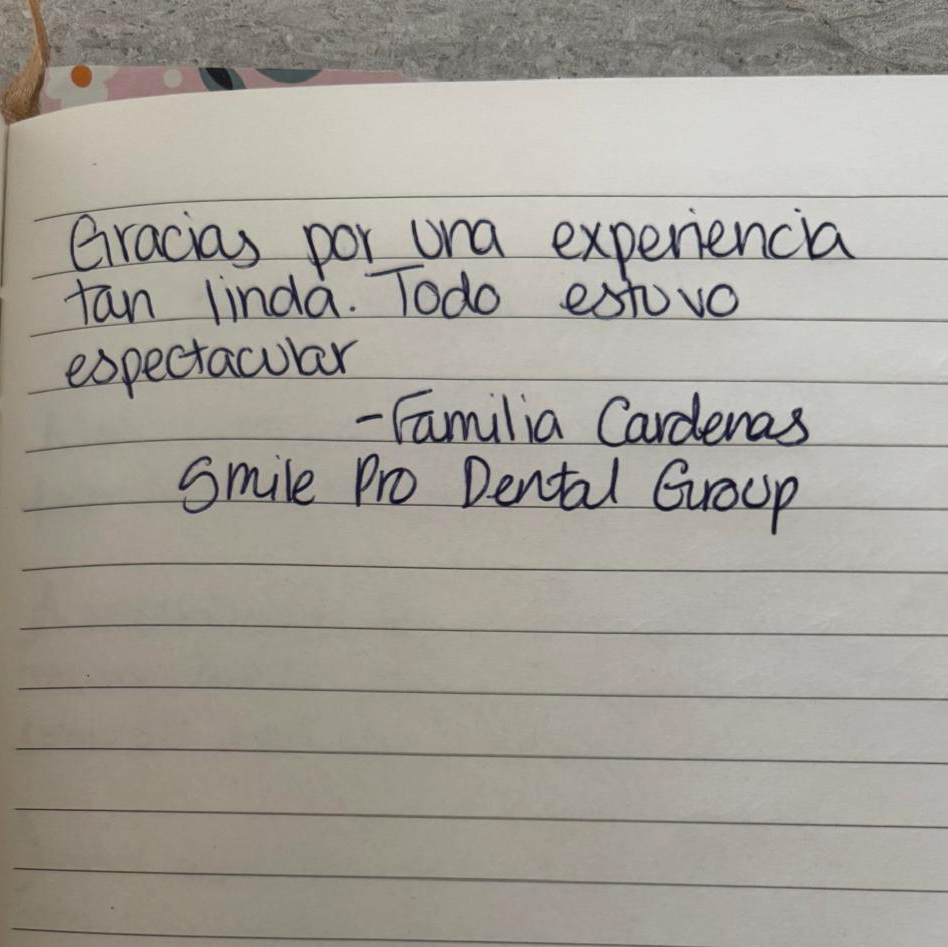 Gracias por una experiencia
tan linda. Todo estuvo
espectacular
-Familia Cardenas
Smile Pro Dental Group